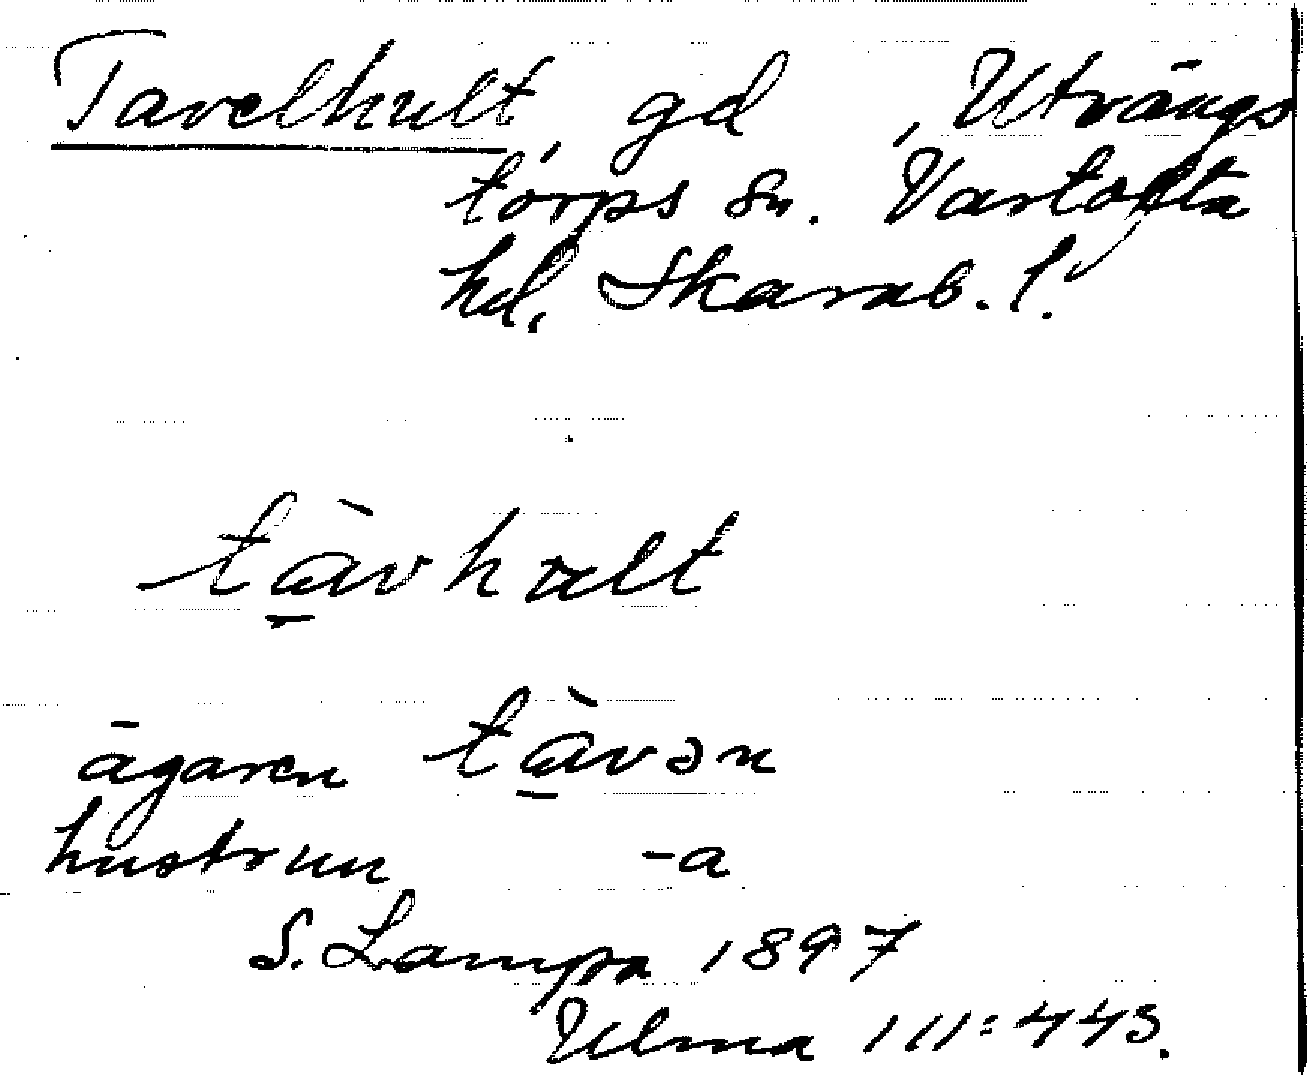 Tavelhult, gd , Utvängs
torps sn. Vartofta
hd, Skarab. l.
tàvhult
ägaren tàvən
hustrun -a
S. Lampa 1897
Ulma 111:443.